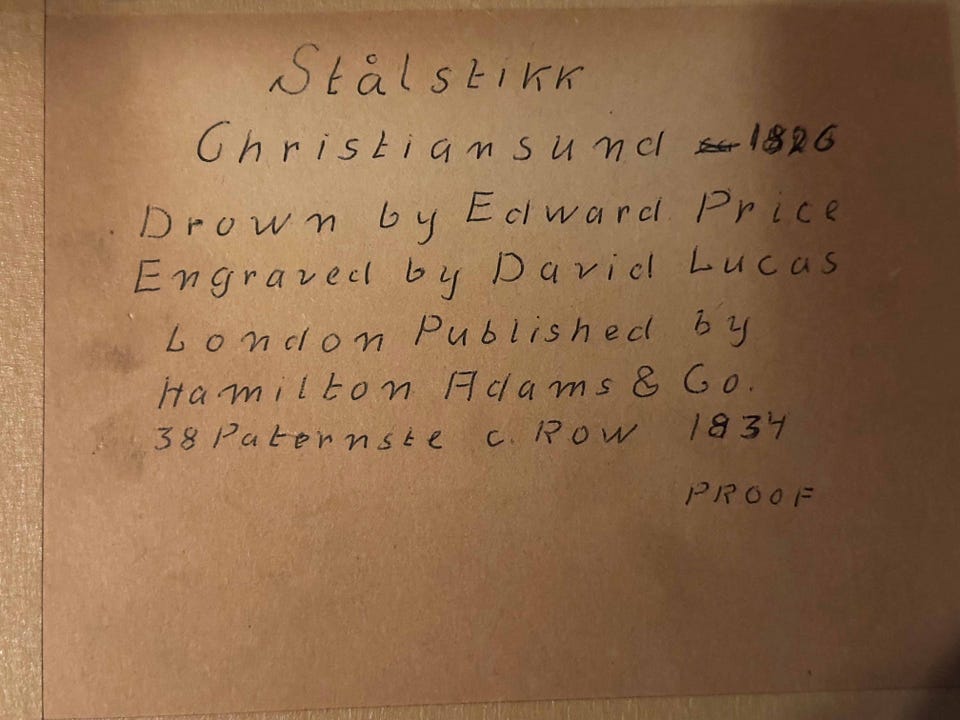 Stålstikk
Christiansund 1826
Drown by Edward Price
Engraved by David Lucas
London Published by
Hamilton Adams & Co.
38 Paternste c. Row 1834
PROOF